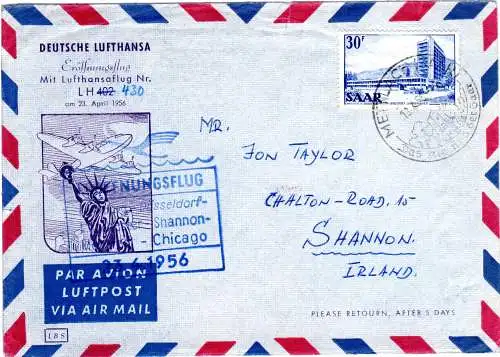 DEUTSCHE LUFTHANSA
Eröffnungsflug
Mit Lufthansaflug Nr.
LH 402 430
am 23. April 1956
30F
SAAR
METTLACH
MR.
JON TAYLOR
CHALTON-ROAD. 15
SHANNON.
IRLAND.
NUNGSFLUG
sseldorf-
Shannon-
- Chicago
23.4.1956
PAR AVION
LUFTPOST
VIA AIR MAIL
PLEASE RETOURN, AFTER 5 DAYS
LBS